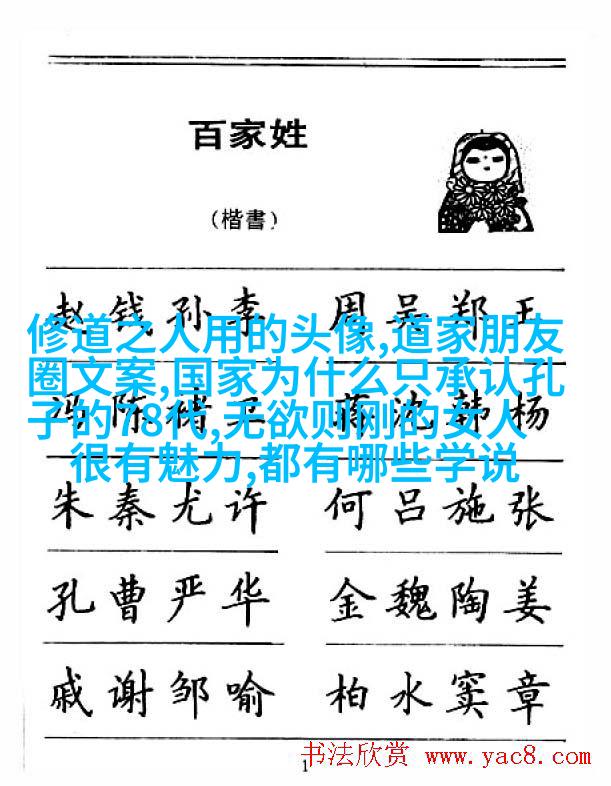 百家姓
(楷書)
赵钱孙李 周吴郑王
修道之人用的头像,道家朋友
圈文案,国家为什么只承认孔
子的78代,无欲则刚的女人
很有魅力,都有哪些学说
冯陈褚卫 蒋沈韩杨
朱秦尤许 何吕施张
孔曹严华 金魏陶姜
戚谢邹喻 柏水窦章
1
书法欣赏 www.yac8.com